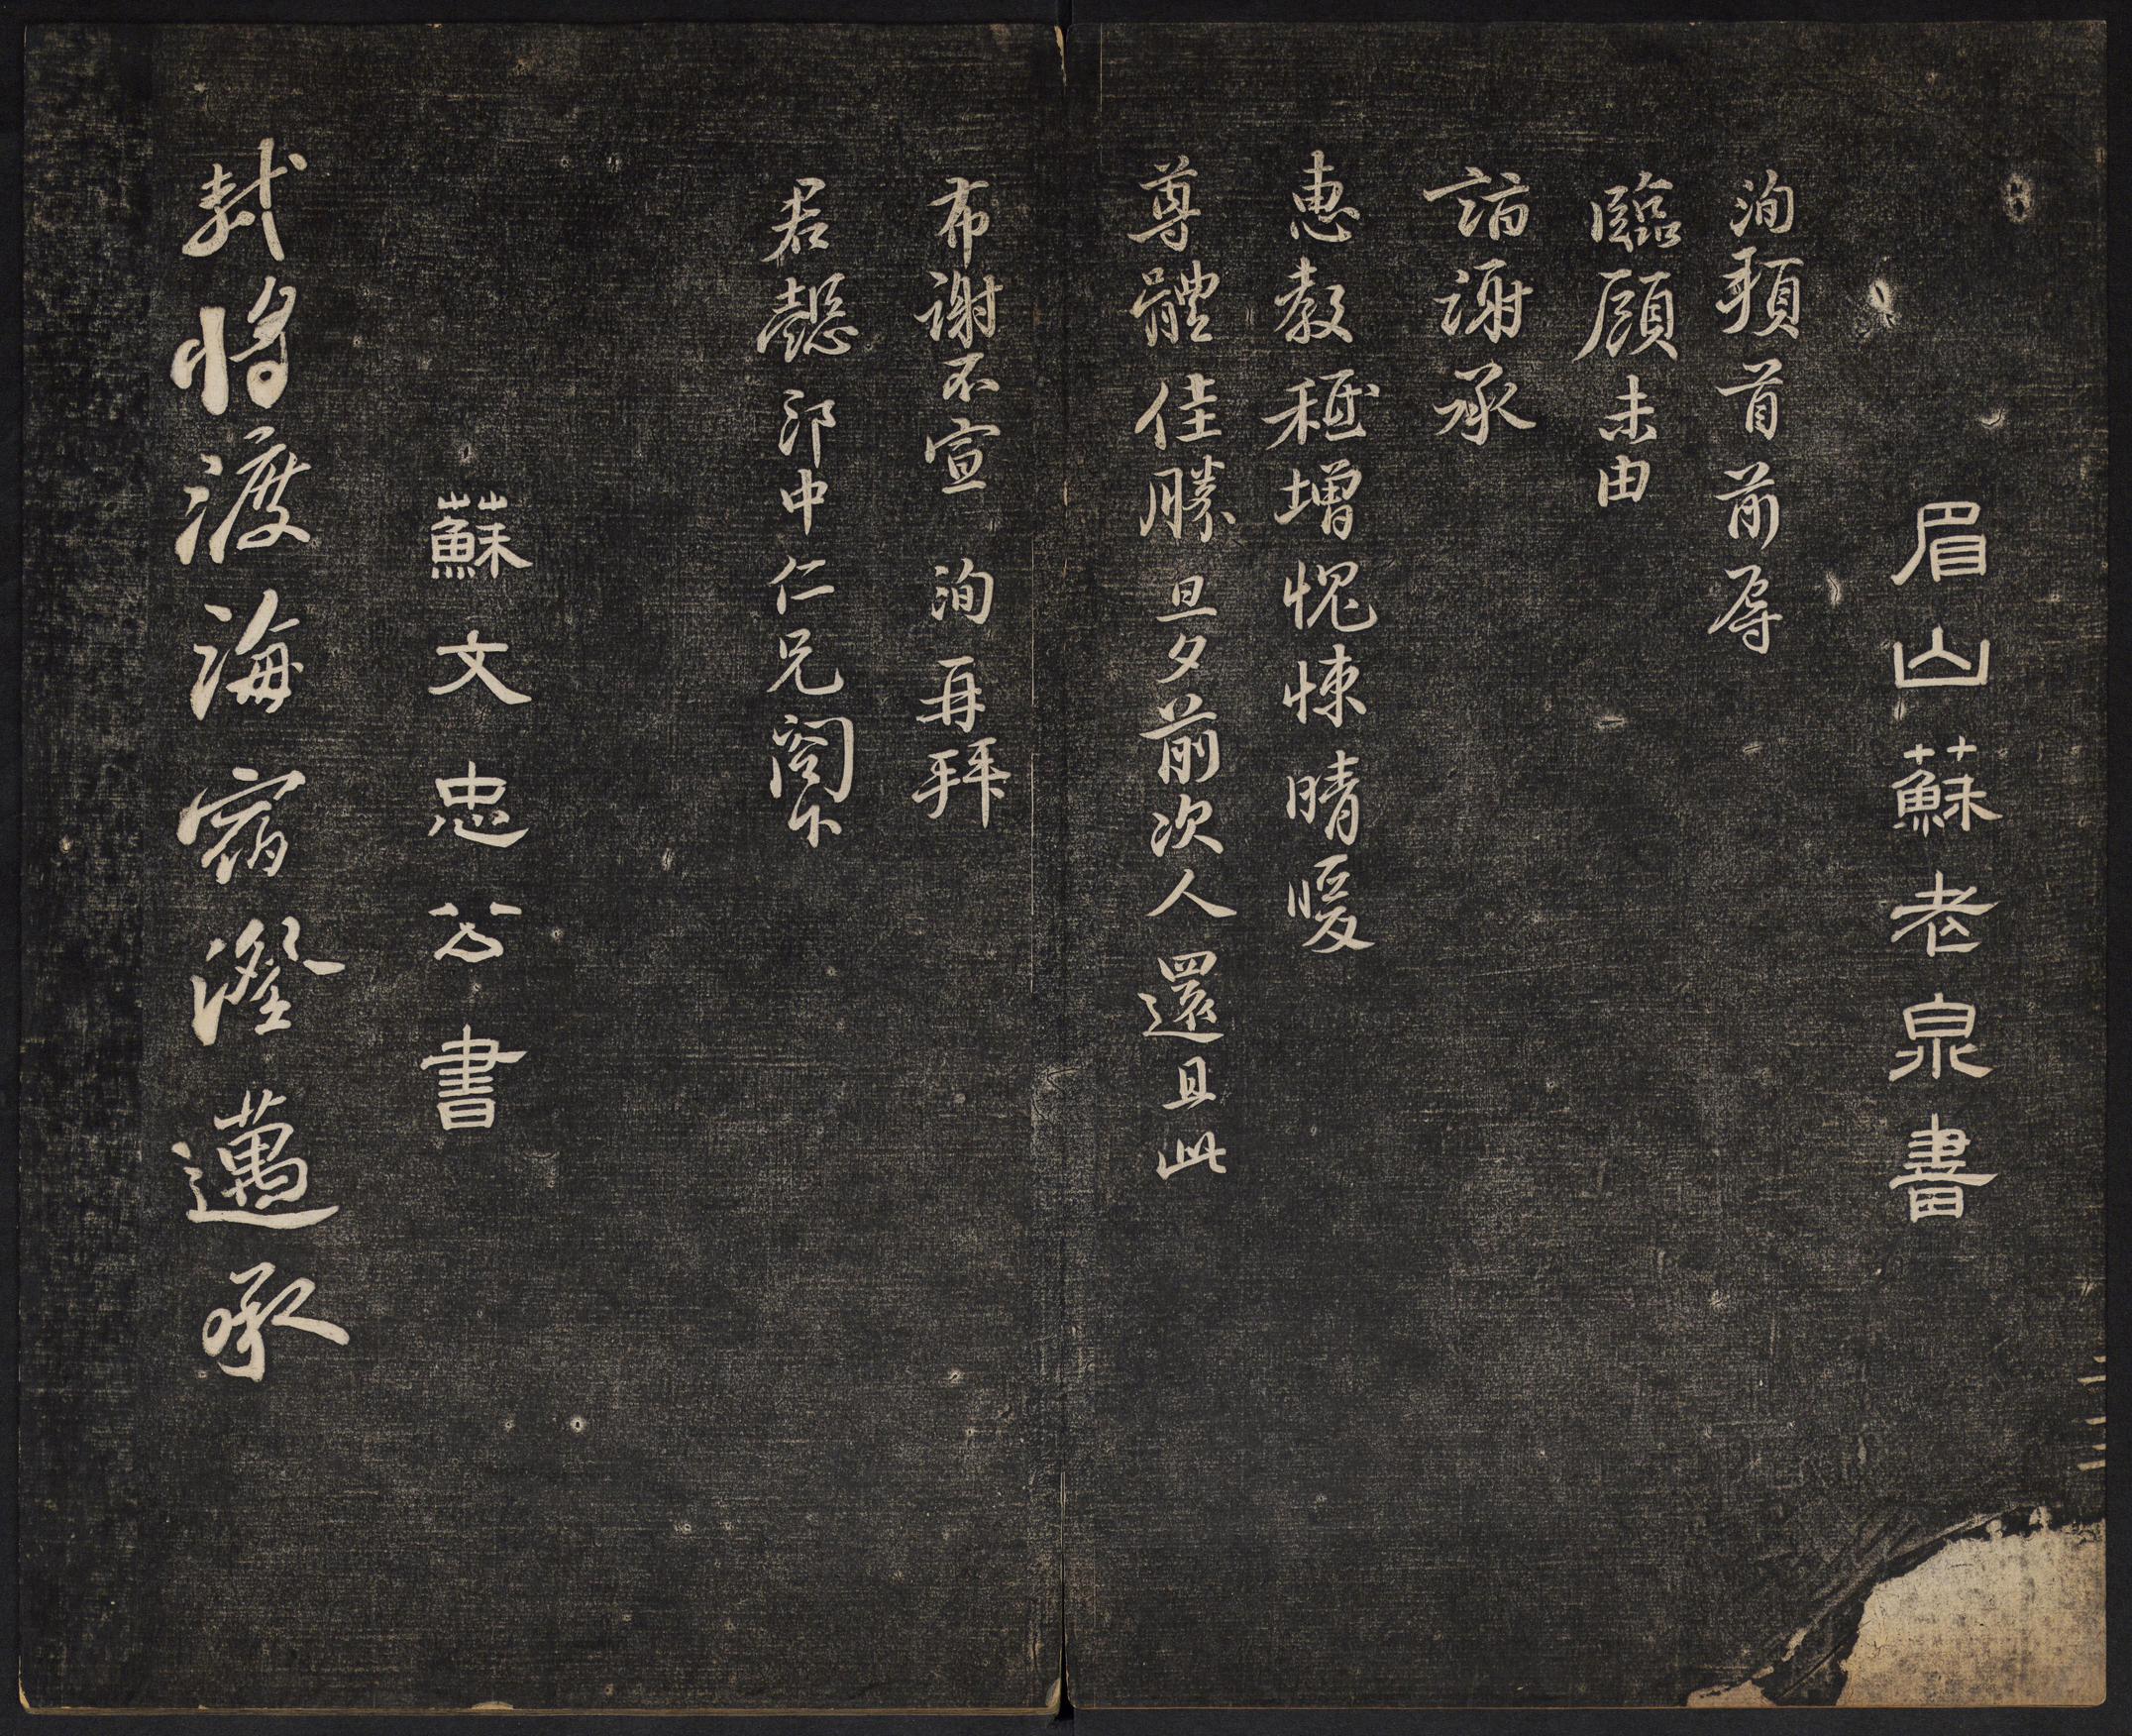 眉山蘇老泉書
洵頓首前辱
臨顧未由
詣謝承
惠教秪增愧悚晴暖
尊體佳勝旦夕前次人還且此
布謝不宣 洵再拜
君懿郎中仁兄閤下
蘇文忠公書
軾將渡海宿澄邁承